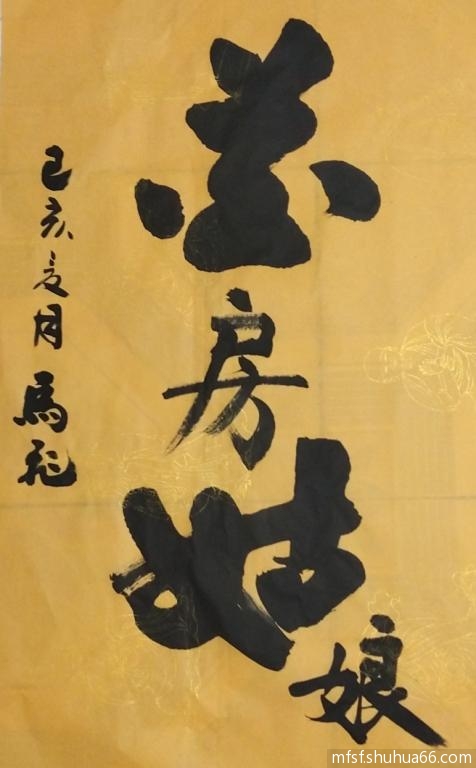 房姑娘
己亥夏月馬飛
mfsf.shuhua66.com